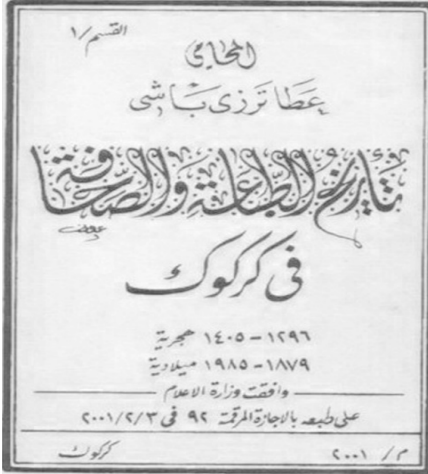 القسم/١
المحامي
عطا ترزى باشى
تأريخ الطباعة والصحافة
فى كركوك
١٢٩٦ - ١٤٠٥ هجرية
١٨٧٩ - ١٩٨٥ ميلادية
وافقت وزارة الاعلام
على طبعه بالاجازة المرقمة ٩٢ فى ٢٠٠١/٢/٣
كركوك ٢٠٠١ م/